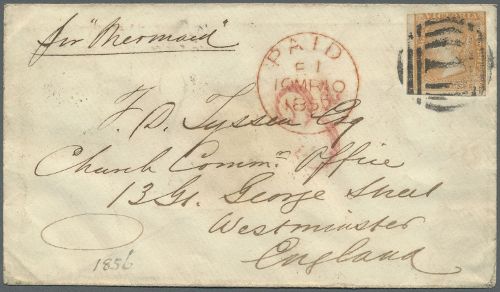 per "Mermaid"
VICTORIA
PAID
1856
F. D. Tyssen Esq
Church Commn. Office
13 Gt. George Street
Westminster
England
1856